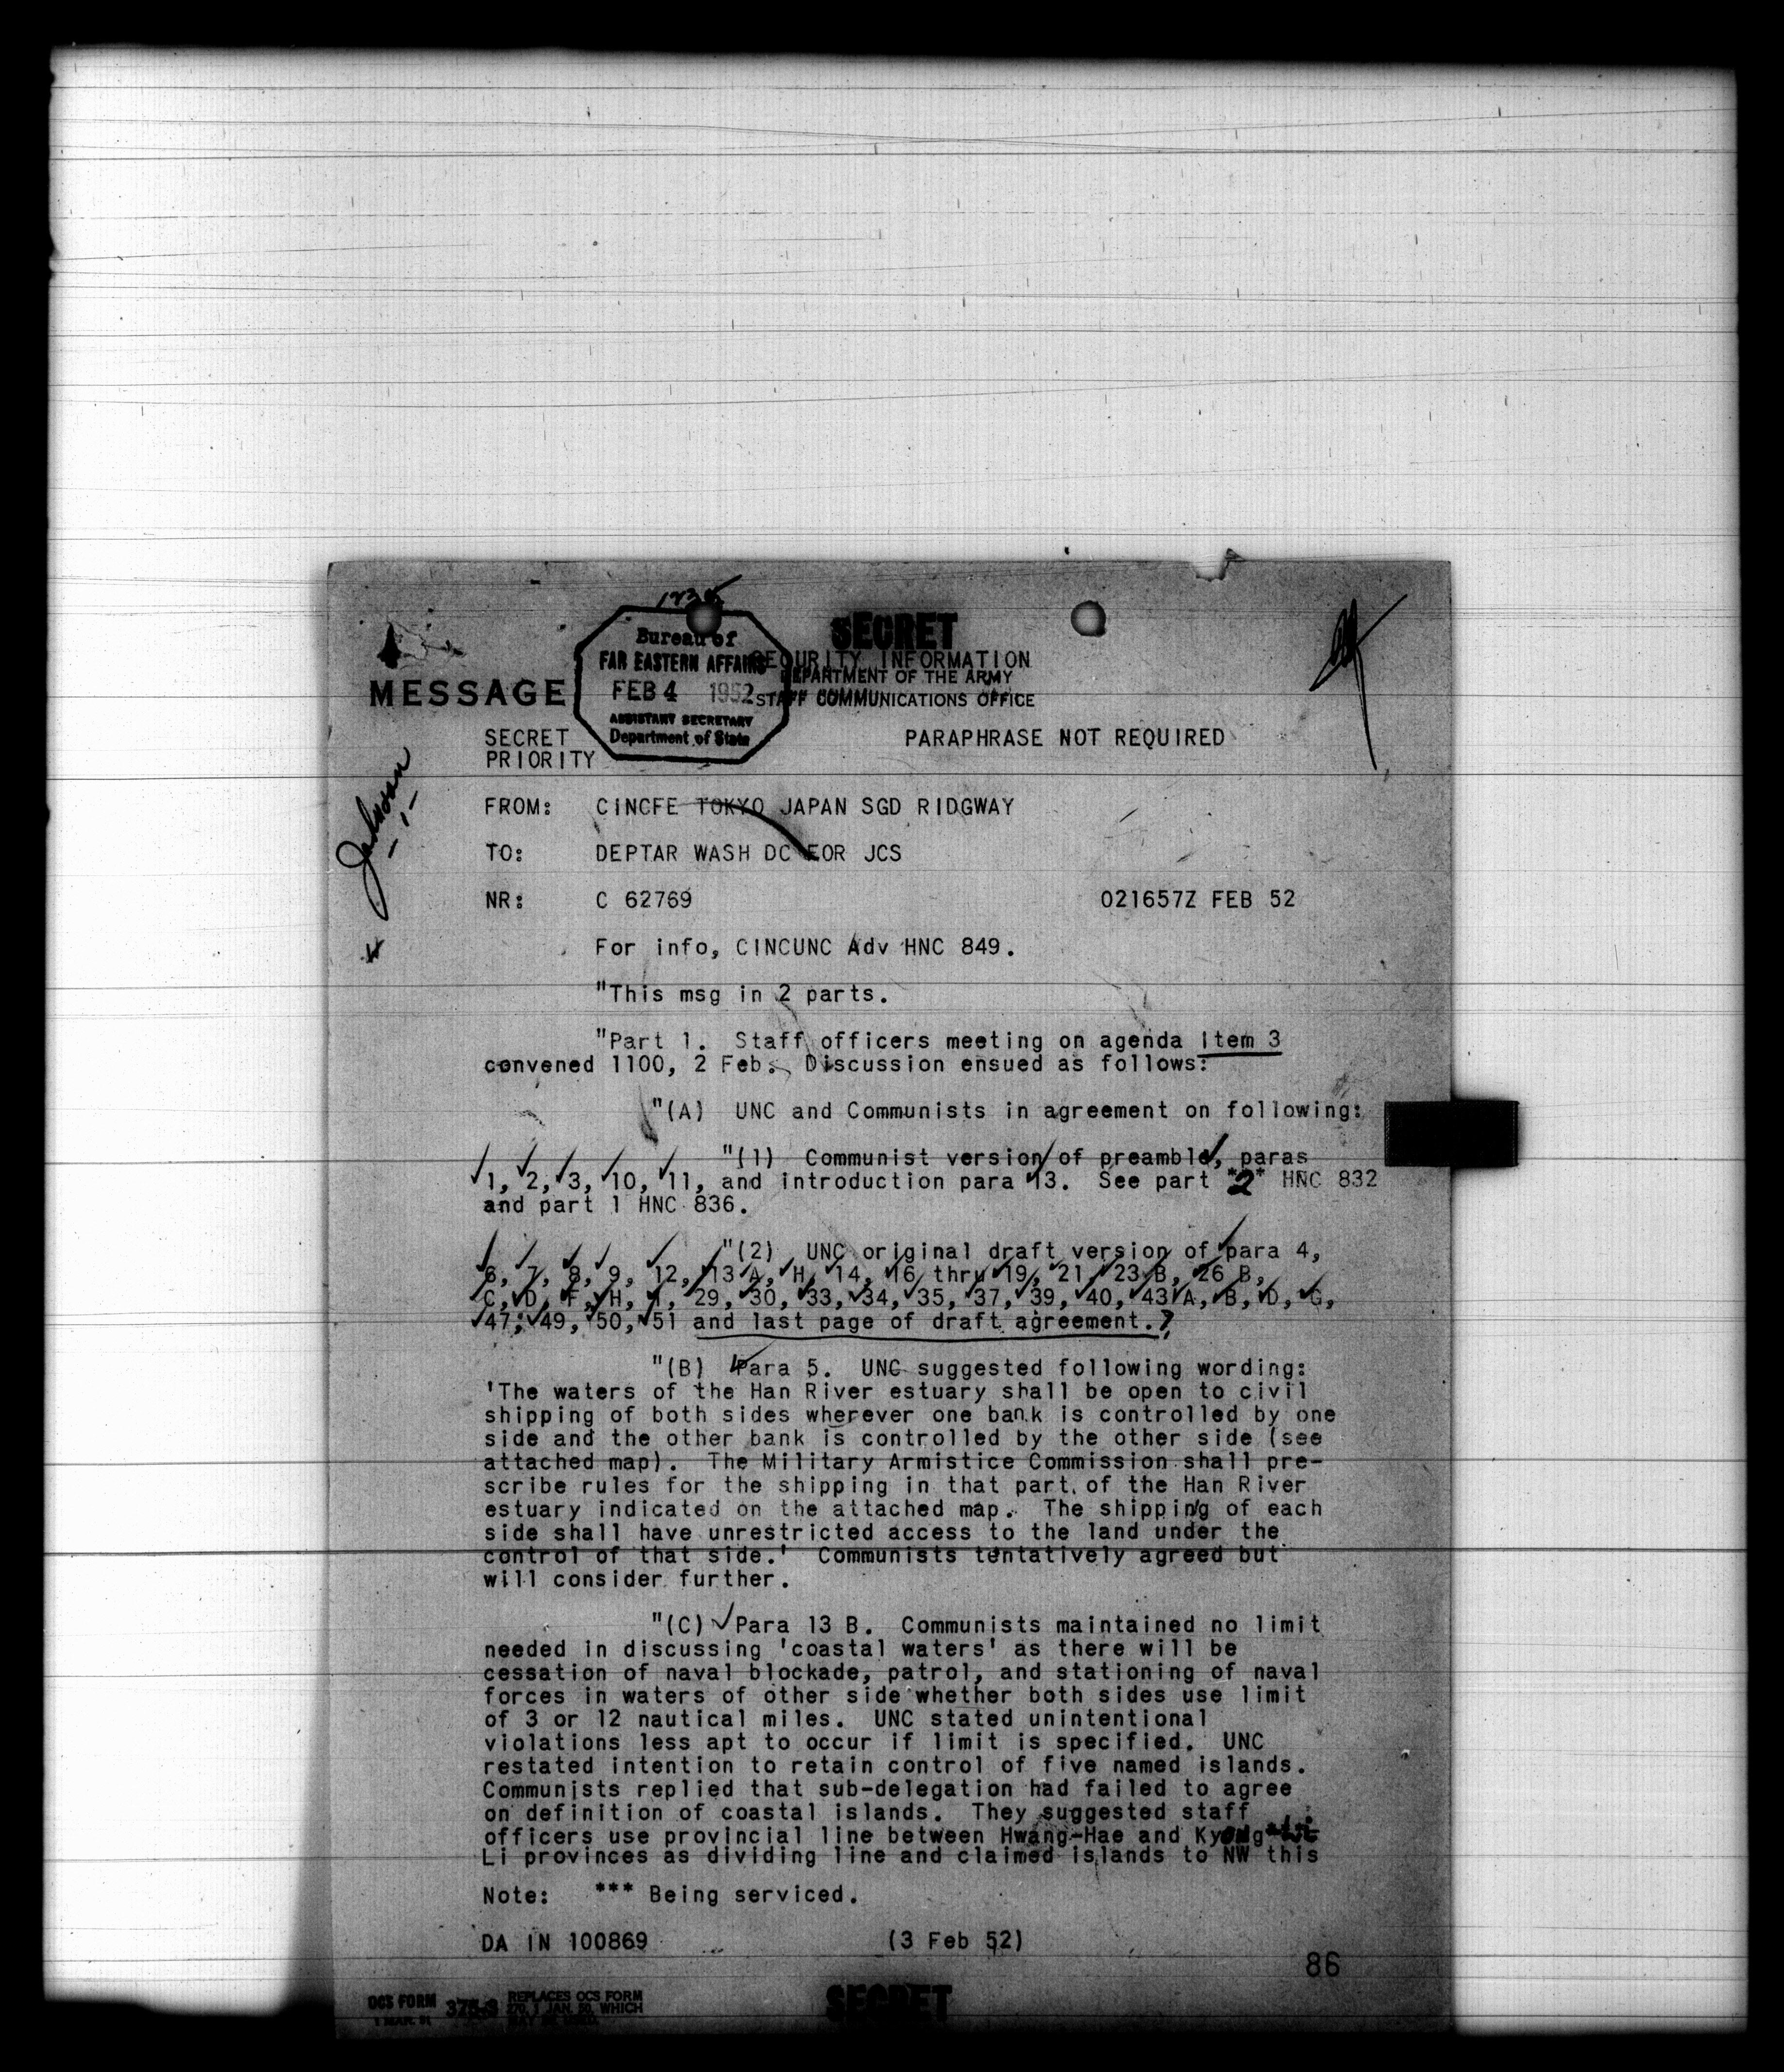 Bureau of
FAR EASTERN AFFAIRS
FEB 4 1952
ASSISTANT SECRETARY
Department of State
SECRET
SECURITY INFORMATION
DEPARTMENT OF THE ARMY
STAFF COMMUNICATIONS OFFICE
MESSAGE
SECRET PARAPHRASE NOT REQUIRED
PRIORITY
FROM: CINCFE TOKYO JAPAN SGD RIDGWAY
TO: DEPTAR WASH DC FOR JCS
NR: C 62769 021657Z FEB 52
For info, CINCUNC Adv HNC 849.
"This msg in 2 parts.
"Part 1. Staff officers meeting on agenda item 3
convened 1100, 2 Feb. Discussion ensued as follows:
"(A) UNC and Communists in agreement on following:
"(1) Communist version of preamble, paras
1, 2, 3, 10, 11, and introduction para 13. See part *2* HNC 832
and part 1 HNC 836.
"(2) UNC original draft version of para 4,
6, 7, 8, 9, 12, 13 A, H, 14, 16 thru 19, 21, 23 B, 26 B,
C, D, F, H, I, 29, 30, 33, 34, 35, 37, 39, 40, 43 A, B, D, G,
47, 49, 50, 51 and last page of draft agreement.?
"(B) Para 5. UNC suggested following wording:
'The waters of the Han River estuary shall be open to civil
shipping of both sides wherever one bank is controlled by one
side and the other bank is controlled by the other side (see
attached map). The Military Armistice Commission shall pre-
scribe rules for the shipping in that part of the Han River
estuary indicated on the attached map. The shipping of each
side shall have unrestricted access to the land under the
control of that side.' Communists tentatively agreed but
will consider further.
"(C) Para 13 B. Communists maintained no limit
needed in discussing 'coastal waters' as there will be
cessation of naval blockade, patrol, and stationing of naval
forces in waters of other side whether both sides use limit
of 3 or 12 nautical miles. UNC stated unintentional
violations less apt to occur if limit is specified. UNC
restated intention to retain control of five named islands.
Communists replied that sub-delegation had failed to agree
on definition of coastal islands. They suggested staff
officers use provincial line between Hwang-Hae and Kyong
Li provinces as dividing line and claimed islands to NW this
Note: *** Being serviced.
DA IN 100869 (3 Feb 52)
86
OCS FORM 375-3 REPLACES OCS FORM
1 MAR. 51 270, 1 JAN. 50, WHICH
MAY BE USED.
SECRET